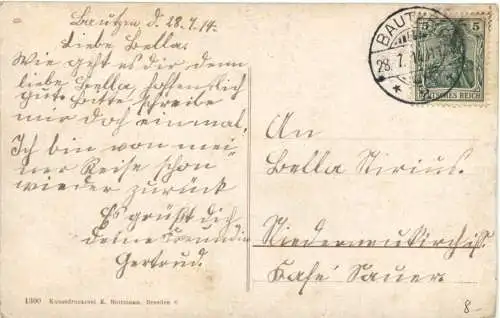 Bautzen d. 28.7.14.
Liebe Bella.
Wie geht es dir denn
liebe Bella, hoffentlich
gut. Bitte schreibe
mir doch einmal,
Ich bin von mei-
ner Reise schon
wieder zurück
Es grüßt dich
deine Freundin
Gertrud.
BAUTZ
28. 7. 14
5 5
DEUTSCHES REICH
An
Bella Sirius.
Niederneukirch
Kafé Sauer.
1300 Kunstdruckerei K. Dresden
8